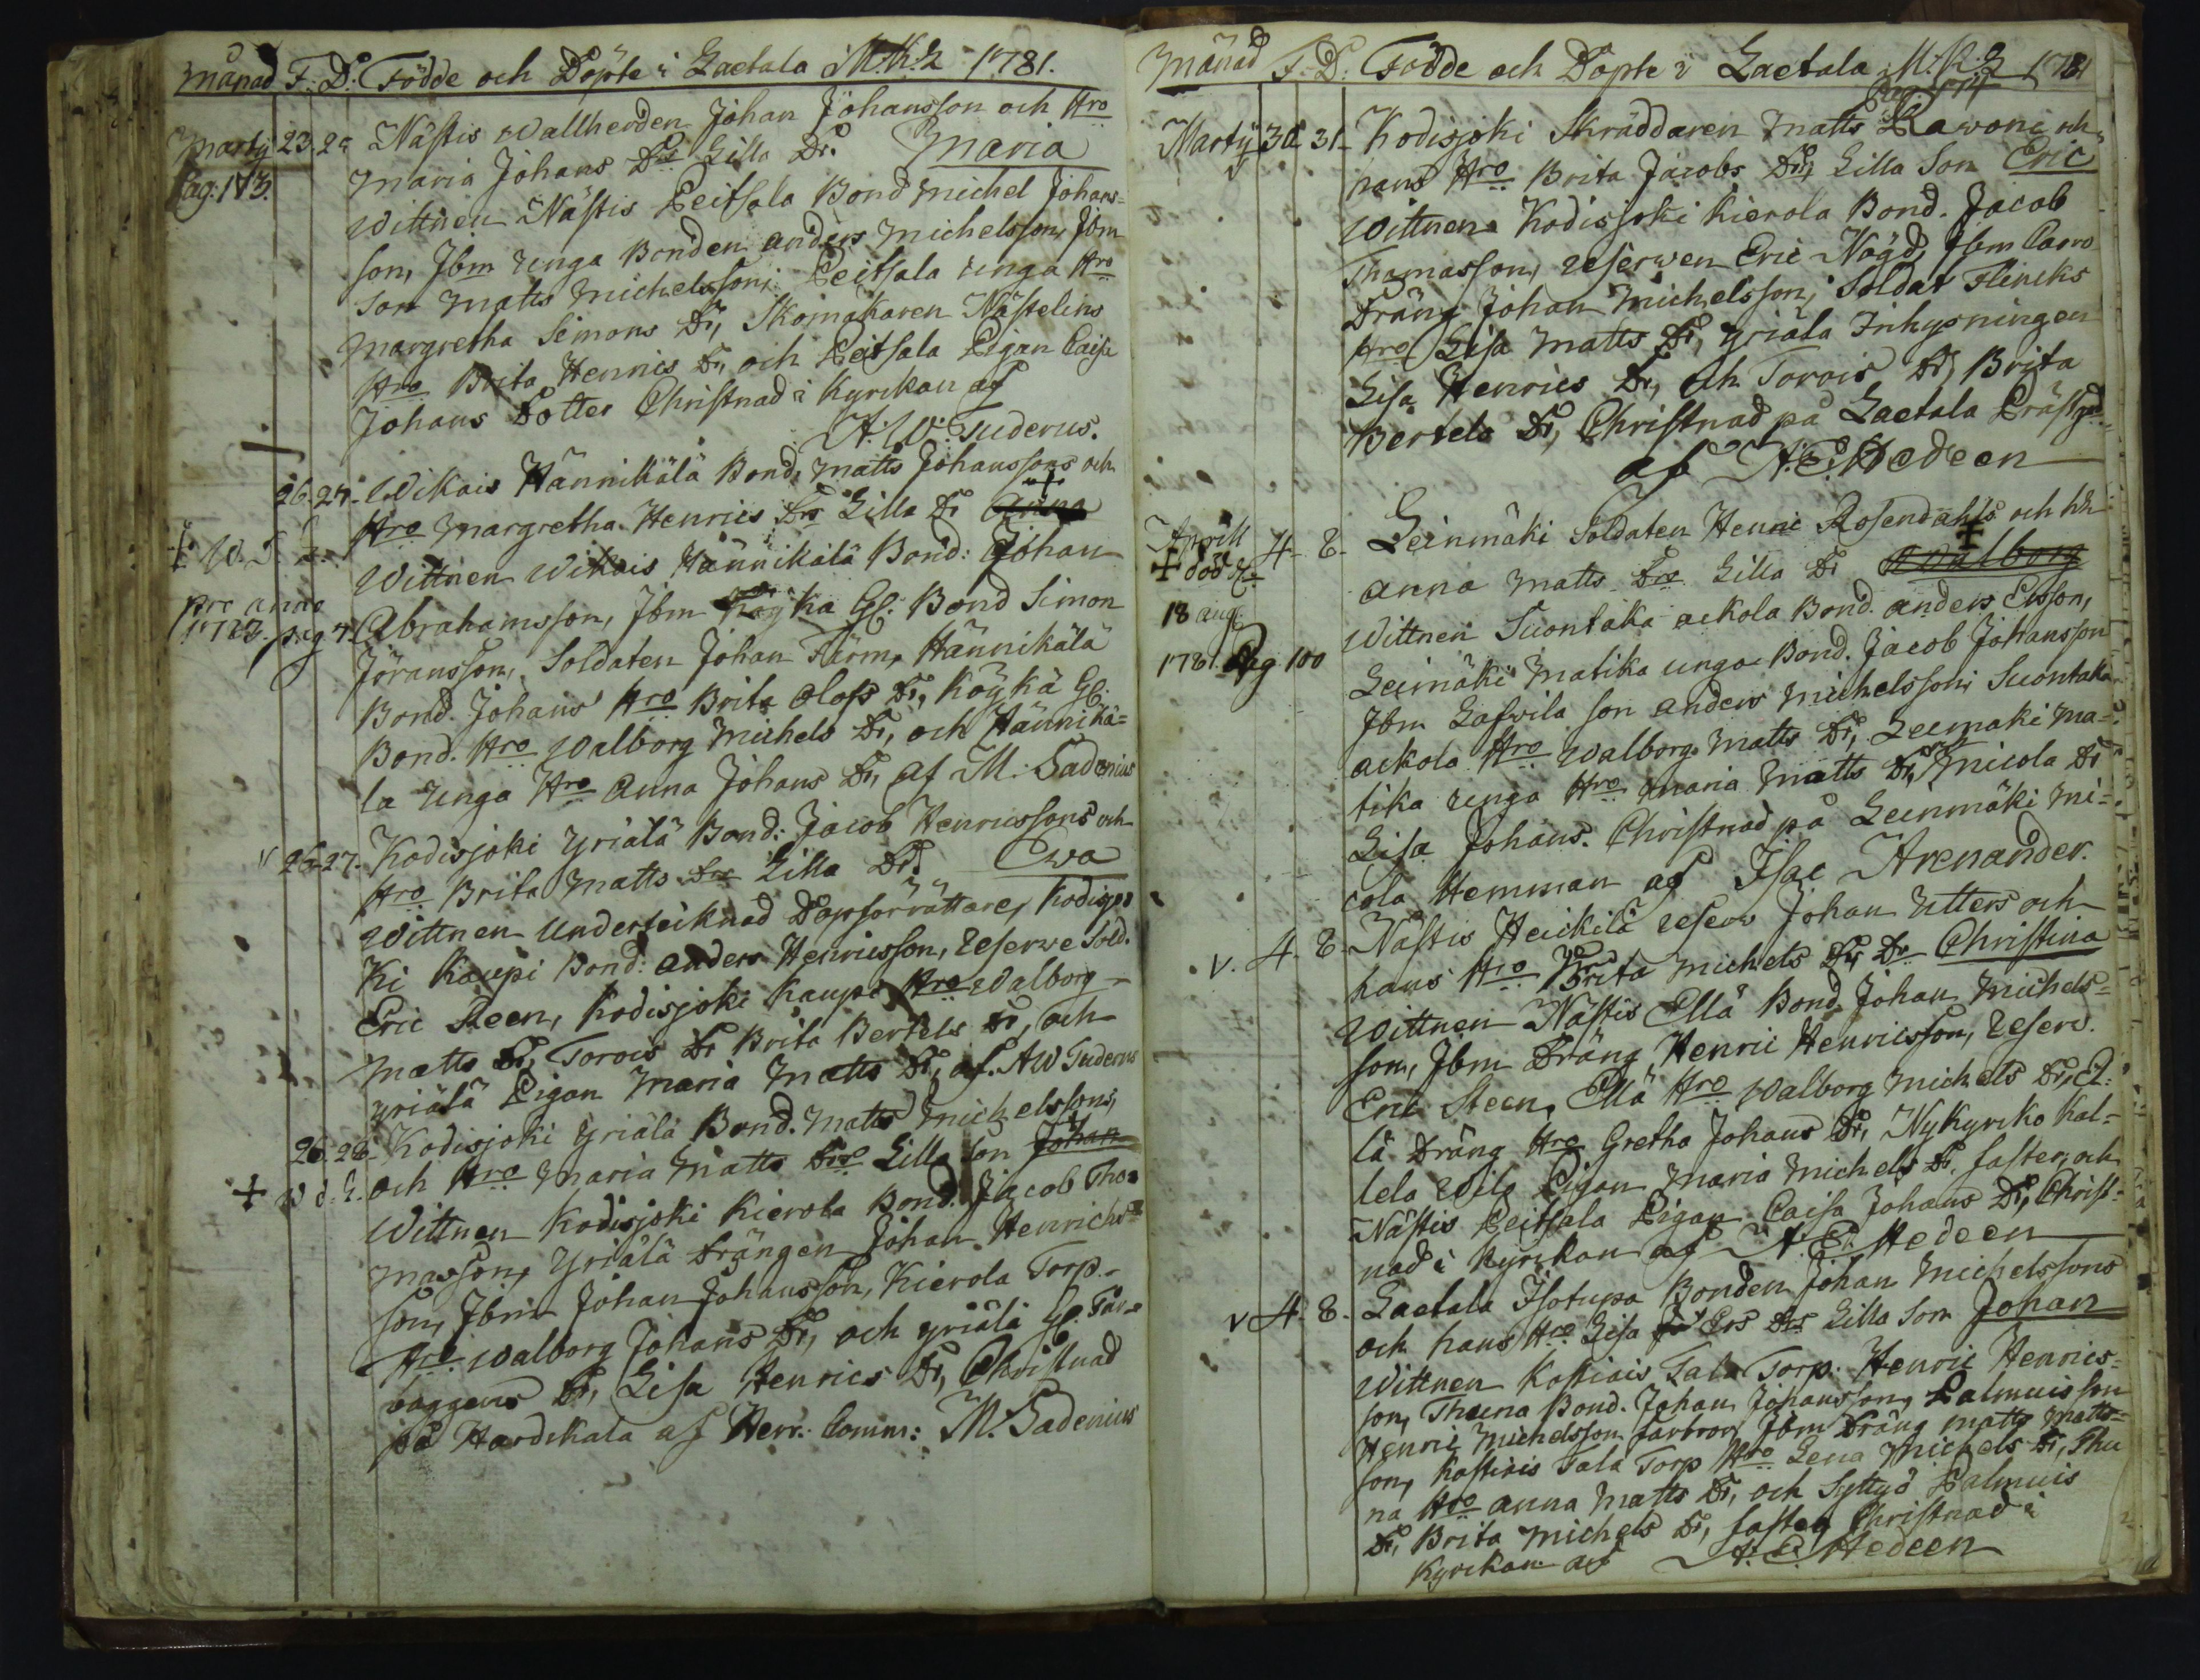 Månad F. D. Födde och Döpte i Laetala M.K.S 1781.
Martij 23. 25 Nästis wallherden Johan Johansson och Hro
Pag: 173. Maria Johans Dr Lilla Dr. Maria
Wittnen Nästis Peitsala Bond Michel Johans=
son, Ibm unga Bonden anders Michelsson, Ibm
Son Matts Michelsson, Peitsala unga Hro
Margretha Simons Dr, Skomakaren Nästelins
Hro Brita Hennis Dr, och Peitsala Pigan Caisa
Johans Dotter Christnad i Kyrckan af
A: W: Tuderus.
26. 27. Wikais Hännikälä Bond, Matts Johanssons och
Hro Margretha Henrics Dro Lilla Dr Anna
Wittnen Wikais Hännikälä Bond: Johan
pro anno
1783. pag 7. Abrahamsson, Ibm Köykä Gl: Bond Simon
Jöransson, Soldaten Johan Färm, Hännikälä
Bond. Johans Hro Brita Olofs Dr, Köykä Gl:
Bond. Hro Walborg Michels Dr, och Hännikä=
la unga Hro Anna Johans Dr, af M: Sadenius
v 26. 27. Kodisjoki Yriälä Bond: Jacob Henricssons och
Hro Brita Matts Dro Lilla Dr. Ewa
Wittnen Underteiknad Dopförrättare, Kodisjo
ki Kaupi Bond: anders Henricsson, Reserwe Sold.
Eric Steen, Kodisjoki Kaupi Hro Walborg
Matts Dr, Torois Dr Brita Bertels Dr, och
Yriälä Pigan Maria Matts Dr, af. AW Tuderus
26. 28. Kodisjoki Yriälä Bond. Matts Michelssons,
och Hro Maria Matts Dro Lilla Son Johan
Wittnen Kodisjoki Kierola Bond. Jacob Tho=
masson, Yriälä Drängen Johan Henrichs=
son, Ibm Johan Johansson, Kierola Torp.
Hro Walborg Johans Dr, och Yriälä Gl. Får=
waggens Dr, Lisa Henrics Dr, Christnad
på Hardikala af Herr. Comm: M. Sadenius
Månad F. D. Födde och Döpte i Laetala M.K.S 1781
Martij 30 31. Kodisjoki Skräddaren Matts Rawoni och
hans Hro Brita Jacobs Dr, Lilla Son Eric
Wittnen Kodisjoki Kierola Bond. Jacob
Thomasson, reserwen Eric Nögd, Ibm
Dräng Johan Michelsson, Soldat Flincks
Hro Lisa Matts Dr, Yriäla Inhysningen
Lisa Henrics Dr, och Torois Dr, Brita
Bertels Dr, Christnad på Laetala Prästgd
af A: E: Hedeen
Aprill 4. 8. Leinmäki Soldaten Henric Rosendahls och
död
18 aug
1781. Pag 100
Anna Matts Dro Lilla Dr Walborg
Wittnen Suontaka ackola Bond. anders Ersson,
Leimäki Matika unga Bond. Jacob Johansson
Ibm Lafwila Son anders Michelsson, Suontaka
ackola Hro Walborg Matts Dr, Leemäki Ma=
tika unga Hro Maria Matts Dr, Micola Dr
Lisa Johans. Christnad på Leinmäki Mi=
cola Hemman af Isac Arenander.
v. 4. 8. Nästis Heickilä reserw Johan Utters och
hans Hro Brita Michels Dr, Dr Christina
Wittnen Nästis Ellä Bond Johan Michels=
son, Ibm Dräng Henric Henricsson, Reserw.
Eric Steen, Ellä Hro Walborg Michels Dr, El:
lä Dräng Hro Gretha Johans Dr, Nykyrko Kal=
lela Pigan Maria Michels Dr. faster, och
Nästis Peitsala Pigan Caisa Johans Dr, Christ=
nad i Kyrckan af A: E: Hedeen
v 4. 8. Laetala Isotupa Bonden Johan Michelssons
och hans Hro Lisa Ers Drs Lilla Son Johan
Wittnen Kastiais Tala Torp. Henric Henrics=
son, Thuna Bond. Johan Johansson, Palmuis Son
Henric Michelsson farbror, Ibm Dräng Matts Matts=
son, Kastiais Tala Torp Hro Lena Michels Dr, Thu
na Hro anna Matts Dr, och Palmuis
Dr, Brita Michels Dr, faster Christnad i
Kyrckan af A. E. Hedeen